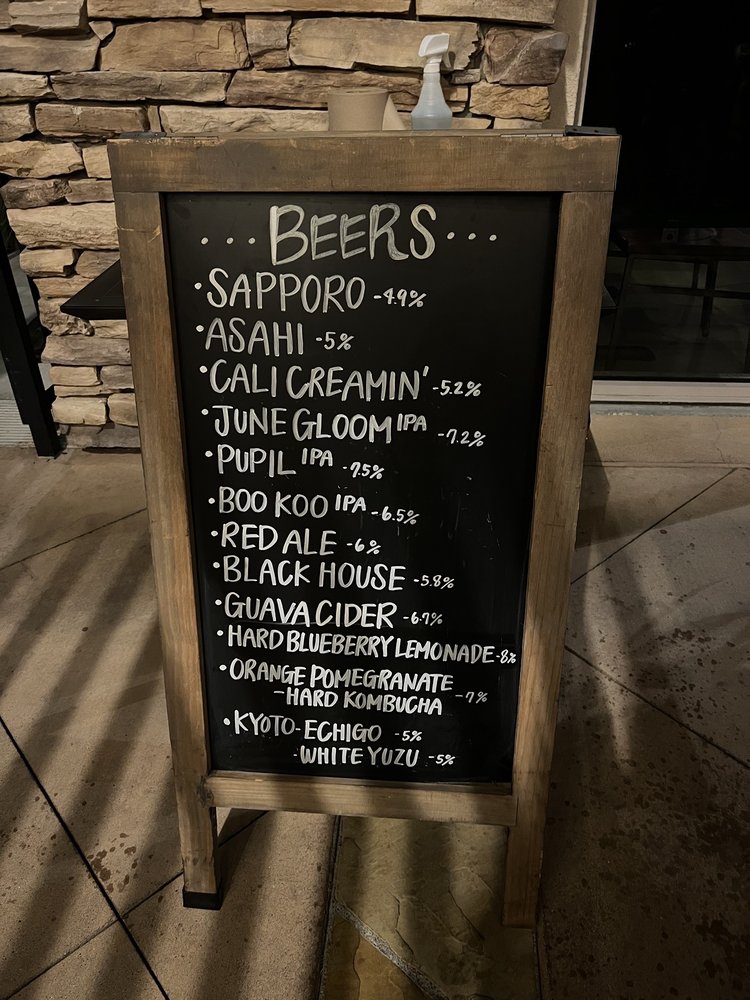 ...BEERS...
•SAPPORO -4.9%
•ASAHI -5%
•CALI CREAMIN' -5.2%
•JUNE GLOOM IPA -7.2%
•PUPIL IPA -7.5%
•BOO KOO IPA -6.5%
•RED ALE -6%
•BLACK HOUSE -5.8%
•GUAVA CIDER -6.7%
•HARD BLUEBERRY LEMONADE -8%
•ORANGE POMEGRANATE
-HARD KOMBUCHA -7%
•KYOTO-ECHIGO -5%
-WHITE YUZU -5%